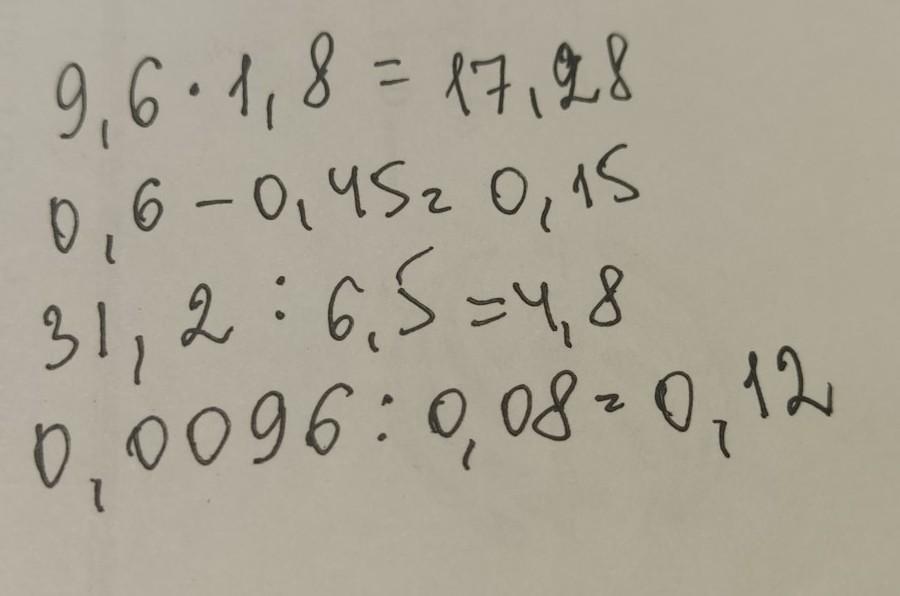 9,6 · 1,8 = 17,28
0,6 - 0,45 = 0,15
31,2 : 6,5 = 4,8
0,0096 : 0,08 = 0,12